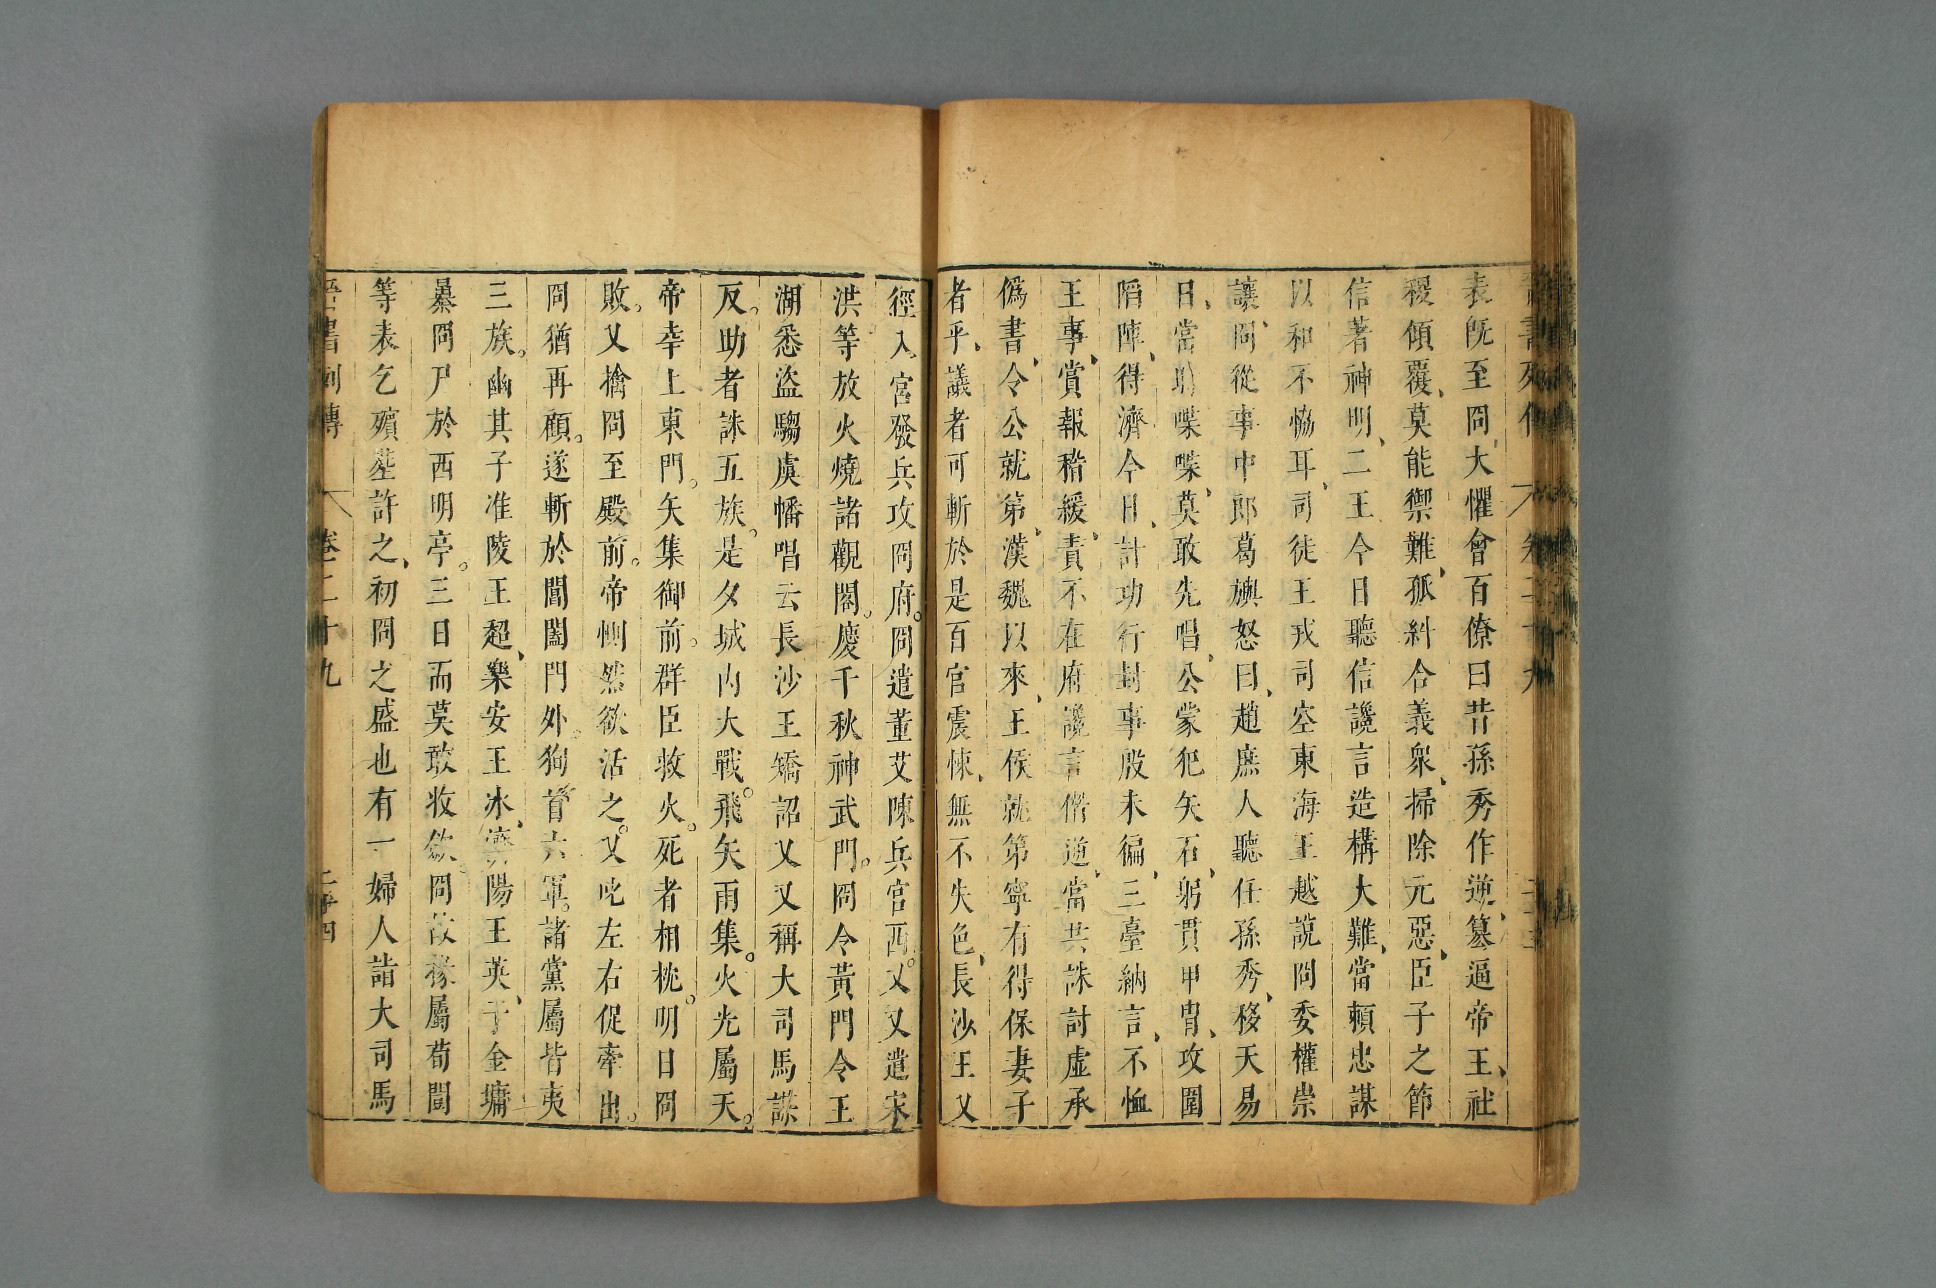 晉書列傳 卷二十九 二十三
表既至冏大懼會百僚曰昔孫秀作逆、篡逼帝王、社
稷傾覆、莫能禦難、孤糾合義衆、掃除元惡、臣子之節
信著神明、二王今日聽信讒言造構大難、當賴忠謀
以和不恊耳、司徒王戎司空東海王越說冏委權崇
讓、冏從事中郎葛旟怒曰、趙庶人聽任孫秀、移天易
日、當時喋喋、莫敢先唱、公蒙犯矢石、躬貫甲胄、攻圍
陷陣、得濟今日、計功行封事殷未徧、三臺納言、不恤
王事、賞報稽緩、責不在府、讒言僭逆、當共誅討虛承
僞書、令公就第、漢魏以來、王侯就第寧有得保妻子
者乎、議者可斬於是百官震悚、無不失色、長沙王乂
徑入宮發兵攻冏府。冏遣董艾陳兵宮西。乂又遣宋
洪等放火燒諸觀閣。慶千秋神武門。冏令黃門令王
湖悉盜騶虞幡唱云長沙王矯詔乂又稱大司馬謀
反。助者誅五族。是夕城內大戰。飛矢雨集。火光屬天。
帝幸上東門。矢集御前。群臣救火。死者相枕。明日冏
敗。乂擒冏至殿前。帝惻然欲活之。乂叱左右促牽出。
冏猶再顧。遂斬於閶闔門外。狥首六軍。諸黨屬皆夷
三族。幽其子淮陵王超、樂安王冰、濟陽王英、于金墉
暴冏尸於西明亭。三日而莫敢收歛。冏故掾屬荀闓
等表乞殯塟許之、初冏之盛也有一婦人詣大司馬
晉書列傳 卷二十九 二十四